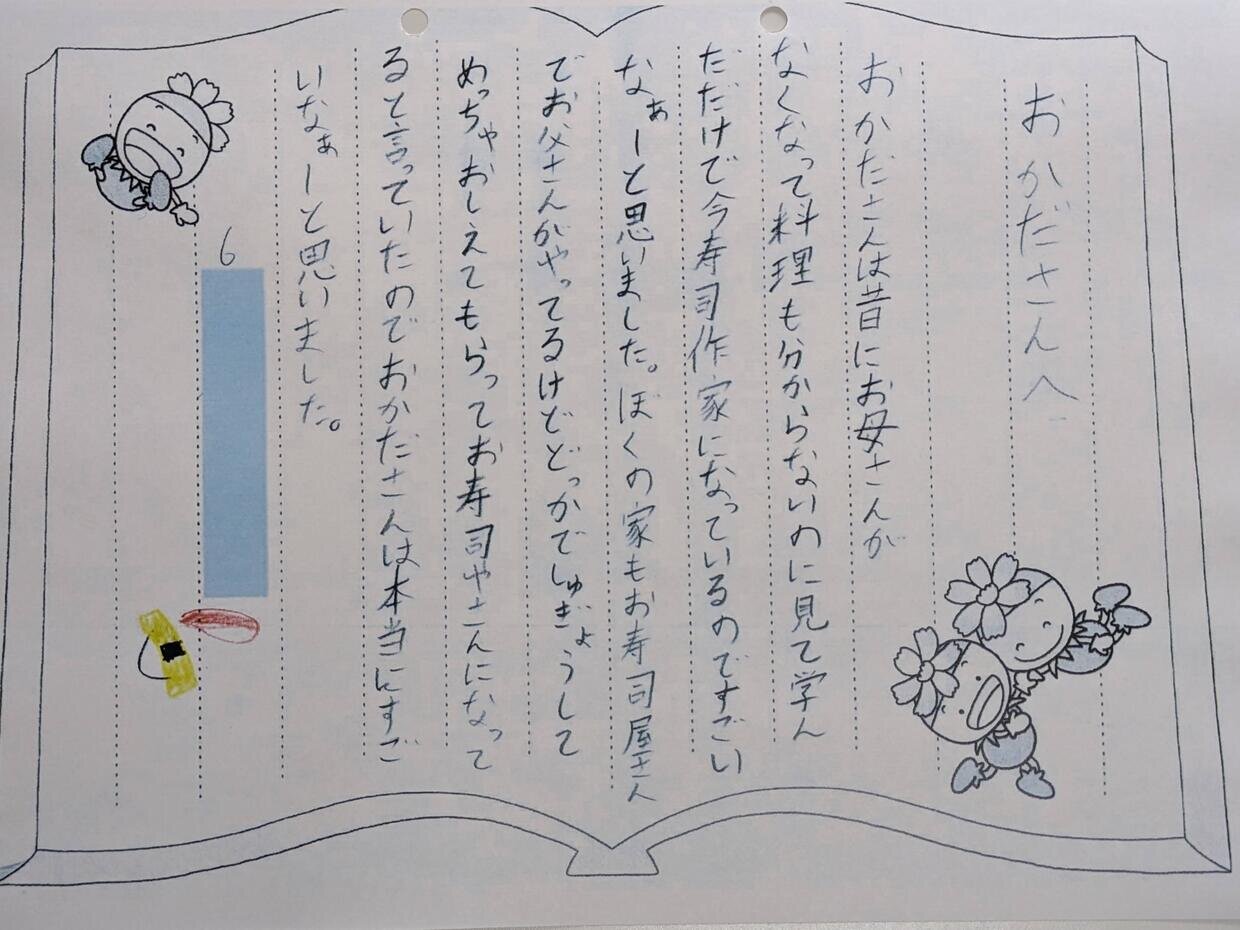 おかださんへ
おかださんは昔にお母さんが
なくなって料理も分からないのに見て学ん
だだけで今寿司作家になっているのですごい
なぁーと思いました。ぼくの家もお寿司屋さん
でお父さんがやってるけどどっかでしゅぎょうして
めっちゃおしえてもらってお寿司やさんになって
ると言っていたのでおかださんは本当にすご
いなぁーと思いました。
6